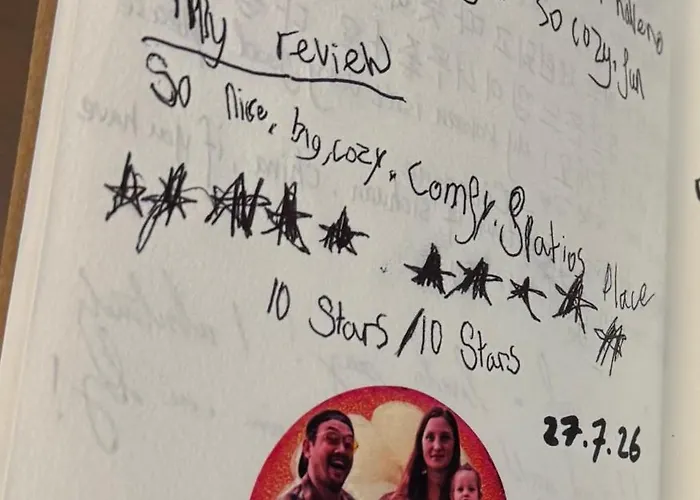 So cozy, fun
My review
So nice, big, cozy, comfy. Spatios Place
10 Stars / 10 Stars
27.7.26